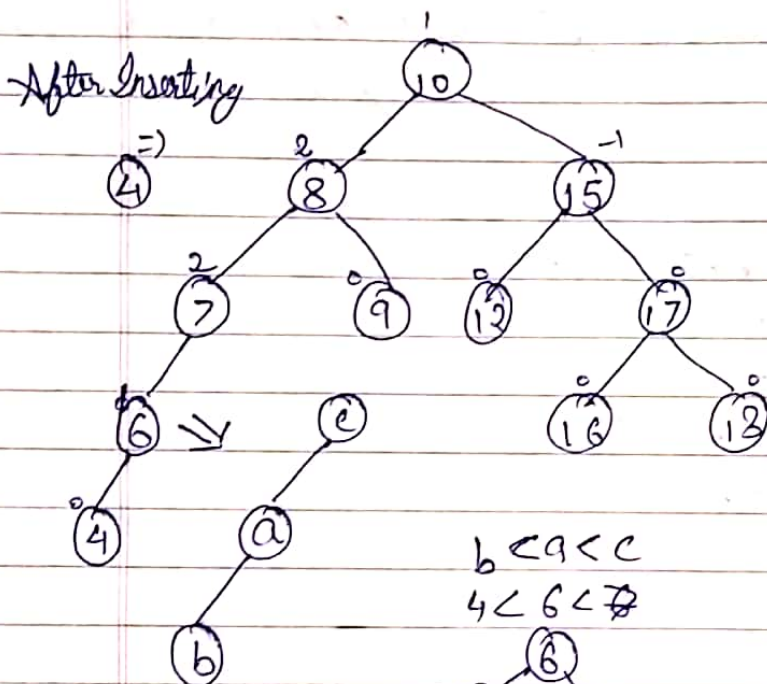 1
10
After Inserting
4 =>
2
8
-1
15
2
7
0
9
0
12
0
17
6
c
0
16
0
18
0
4
a
b < a < c
4 < 6 < 7
b
6